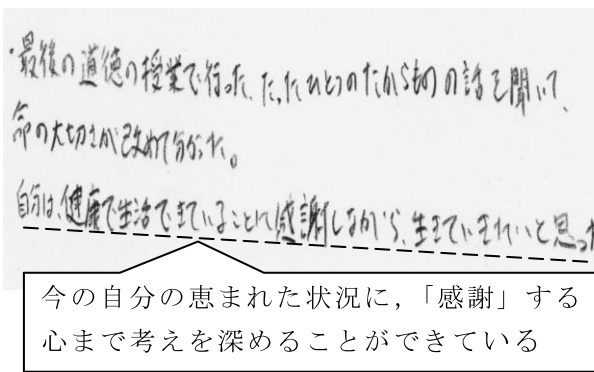 ・最後の道徳の授業で行った、たったひとつのたからものの話を聞いて、
命の大切さが改めて分かった。
自分は、健康で生活できていることに感謝しながら、生きていきたいと思った
今の自分の恵まれた状況に，「感謝」する
心まで考えを深めることができている